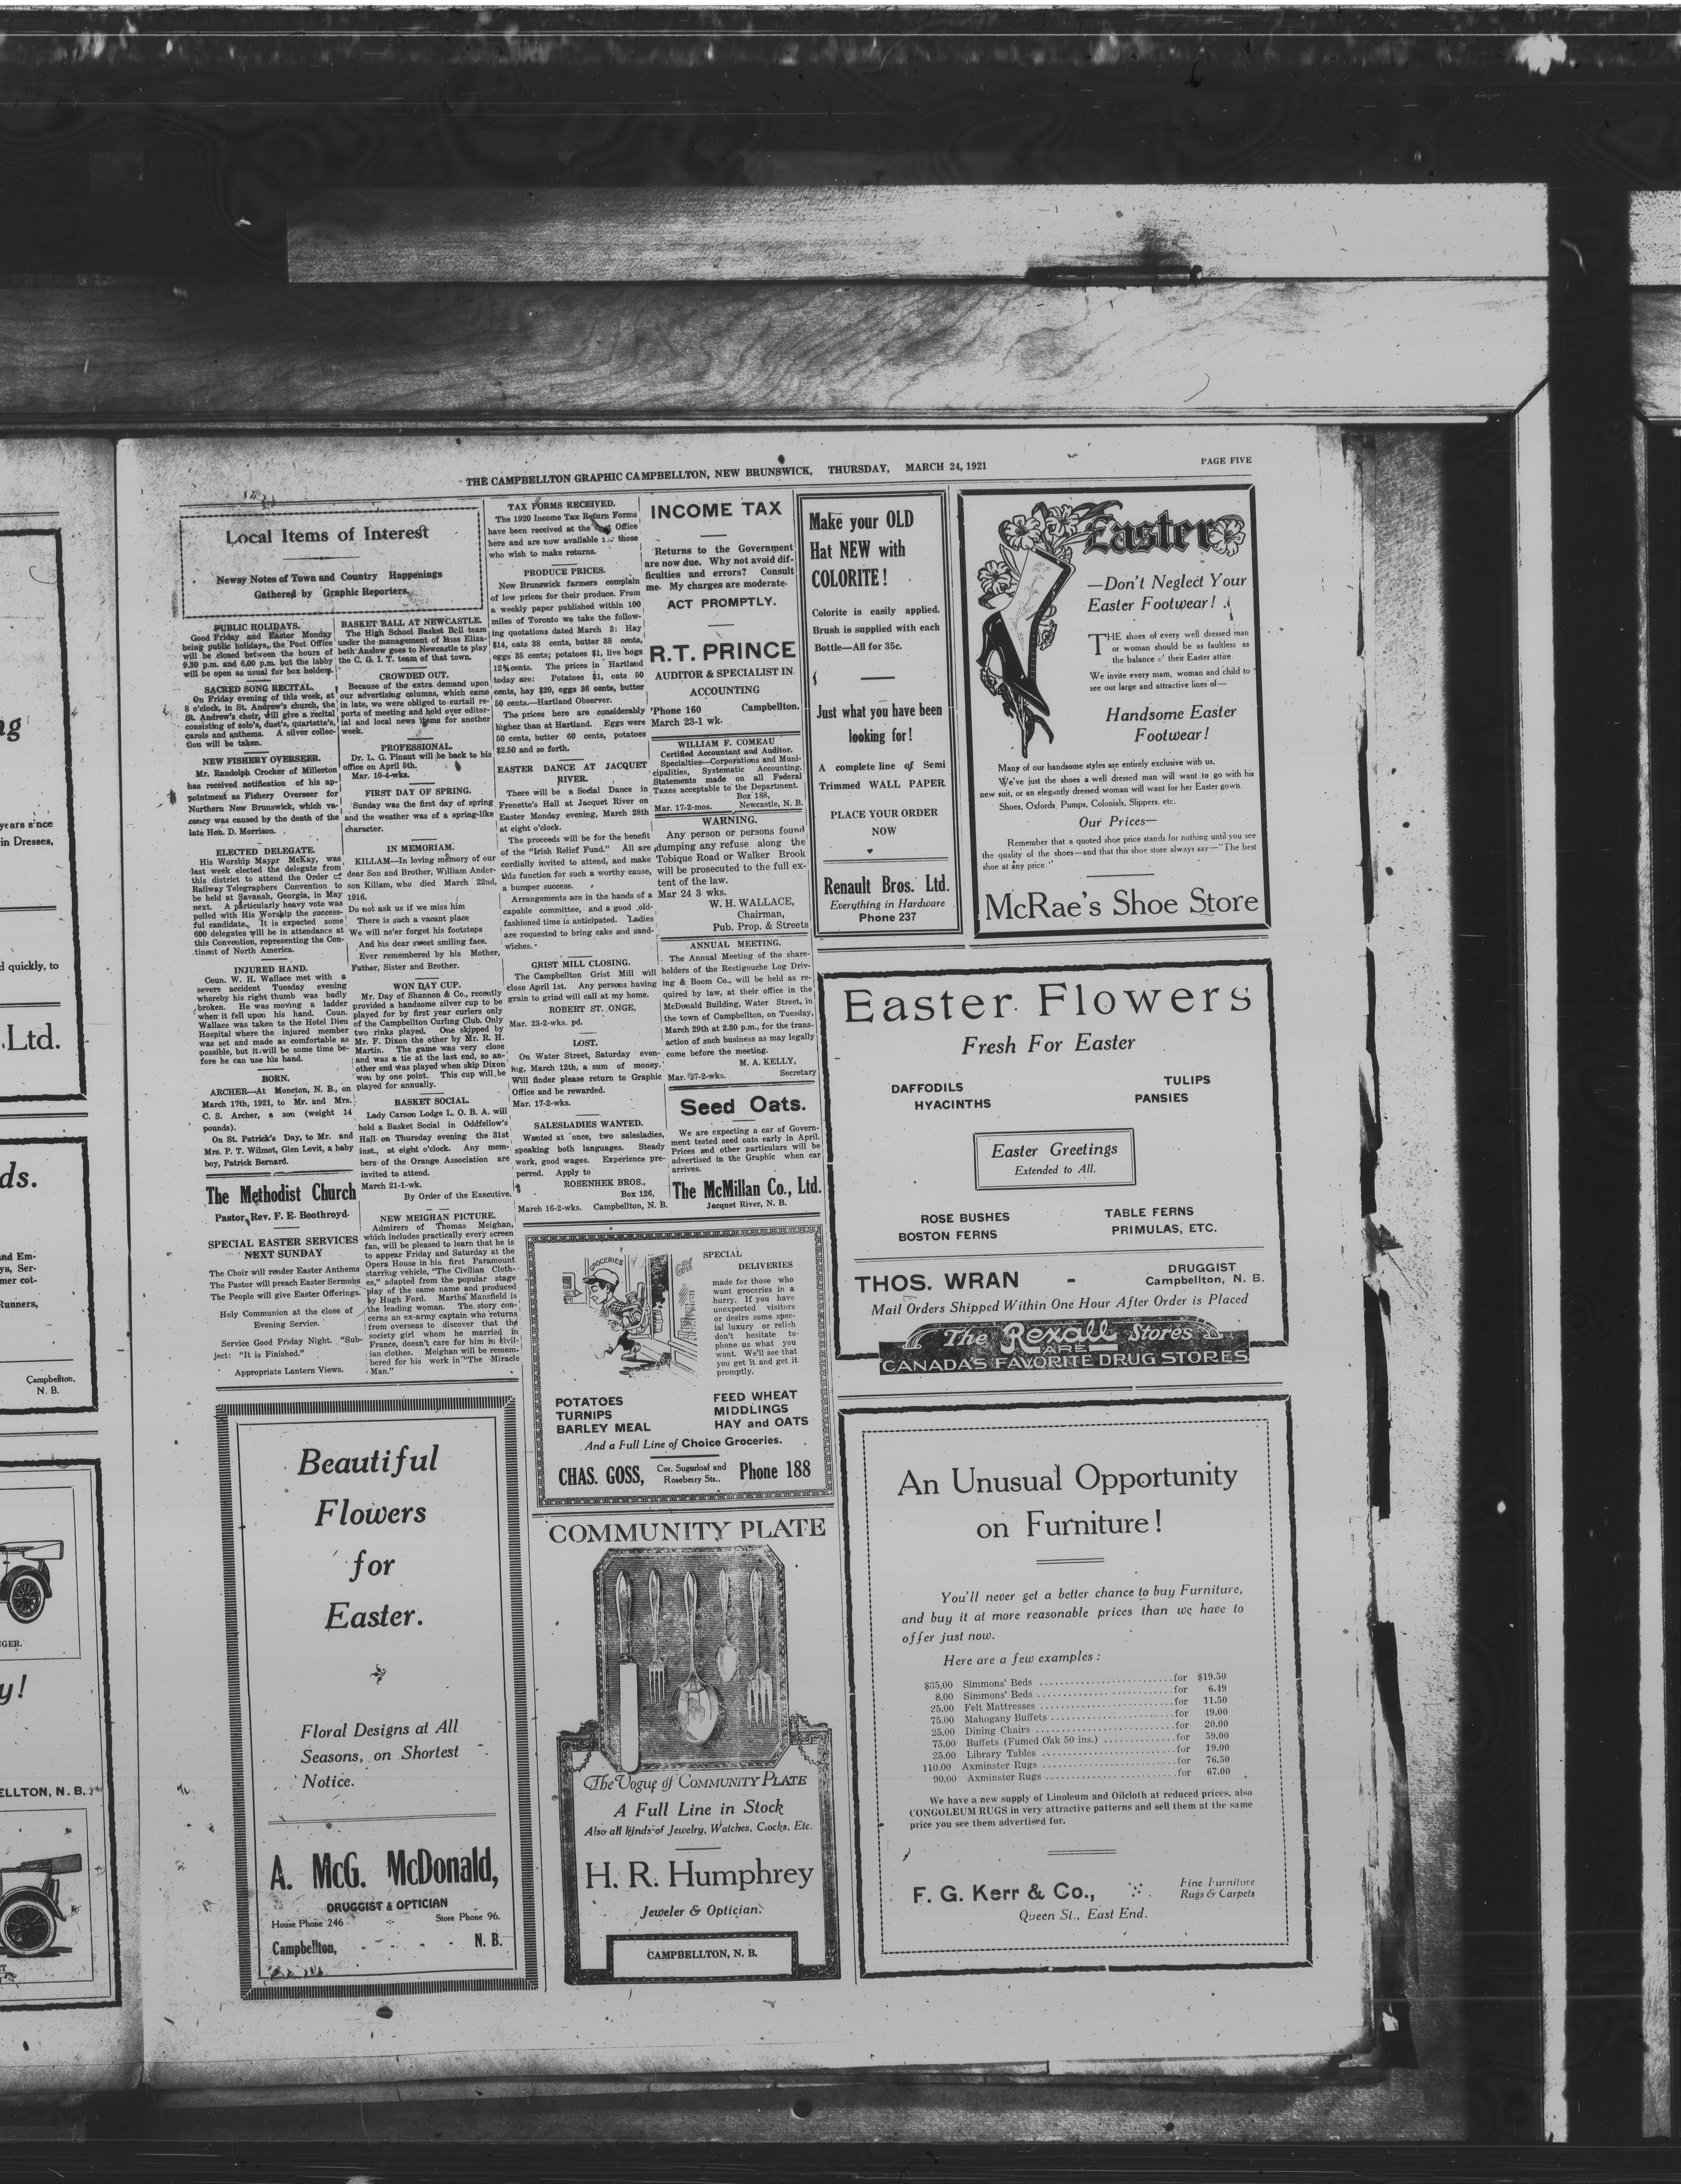 THE CAMPBELLTON GRAPHIC CAMPBELLTON, NEW BRUNSWICK, THURSDAY, MARCH 24, 1921
PAGE FIVE
Local Items of Interest
Newsy Notes of Town and Country Happenings
Gathered by Graphic Reporters.
PUBLIC HOLIDAYS.
Good Friday and Easter Monday
being public holidays, the Post Office
will be closed between the hours of
9.30 p.m. and 6.00 p.m. but the lobby
will be open as usual for box holders.
SACRED SONG RECITAL.
On Friday evening of this week, at
8 o'clock, in St. Andrew's church, the
St. Andrew's choir, will give a recital
consisting of solo's, duet's, quartette's,
carols and anthems. A silver collec-
tion will be taken.
NEW FISHERY OVERSEER.
Mr. Randolph Crocker of Millerton
has received notification of his ap-
pointment as Fishery Overseer for
Northern New Brunswick, which va-
cancy was caused by the death of the
late Hon. D. Morrison.
ELECTED DELEGATE.
His Worship Mayor McKay, was
last week elected the delegate from
this district to attend the Order of
Railway Telegraphers Convention to
be held at Savanah, Georgia, in May
next. A particularly heavy vote was
polled with His Worship the success-
ful candidate. It is expected some
600 delegates will be in attendance at
this Convention, representing the Con-
tinent of North America.
INJURED HAND.
Coun. W. H. Wallace met with a
severe accident Tuesday evening
whereby his right thumb was badly
broken. He was moving a ladder
when it fell upon his hand. Coun.
Wallace was taken to the Hotel Dieu
Hospital where the injured member
was set and made as comfortable as
possible, but it will be some time be-
fore he can use his hand.
BORN.
ARCHER—At Moncton, N. B., on
March 17th, 1921, to Mr. and Mrs.
C. S. Archer, a son (weight 14
pounds).
On St. Patrick's Day, to Mr. and
Mrs. P. T. Wilmot, Glen Levit, a baby
boy, Patrick Bernard.
The Methodist Church
Pastor, Rev. F. E. Boothroyd.
SPECIAL EASTER SERVICES
NEXT SUNDAY
The Choir will render Easter Anthems
The Pastor will preach Easter Sermons
The People will give Easter Offerings.
Holy Communion at the close of
Evening Service.
Service Good Friday Night. "Sub-
ject: "It is Finished."
Appropriate Lantern Views.
BASKET BALL AT NEWCASTLE.
The High School Basket Ball team
under the management of Miss Eliza-
beth Anslow goes to Newcastle to play
the C. G. I. T. team of that town.
CROWDED OUT.
Because of the extra demand upon
our advertising columns, which came
in late, we were obliged to curtail re-
ports of meeting and hold over editor-
ial and local news items for another
week.
PROFESSIONAL.
Dr. L. G. Pinaut will be back to his
office on April 5th.
Mar. 10-4-wks.
FIRST DAY OF SPRING.
Sunday was the first day of spring
and the weather was of a spring-like
character.
IN MEMORIAM.
KILLAM—In loving memory of our
dear Son and Brother, William Ander-
son Killam, who died March 22nd,
1916.
Do not ask us if we miss him
There is such a vacant place
We will ne'er forget his footsteps
And his dear sweet smiling face.
Ever remembered by his Mother,
Father, Sister and Brother.
WON DAY CUP.
Mr. Day of Shannon & Co., recently
provided a handsome silver cup to be
played for by first year curlers only
of the Campbellton Curling Club. Only
two rinks played. One skipped by
Mr. F. Dixon the other by Mr. R. H.
Martin. The game was very close
and was a tie at the last end, so an-
other end was played when skip Dixon
won by one point. This cup will be
played for annually.
BASKET SOCIAL.
Lady Carson Lodge L. O. B. A. will
hold a Basket Social in Oddfellow's
Hall on Thursday evening the 31st
inst., at eight o'clock. Any mem-
bers of the Orange Association are
invited to attend.
March 21-1-wk.
By Order of the Executive.
NEW MEIGHAN PICTURE.
Admirers of Thomas Meighan,
which includes practically every screen
fan, will be pleased to learn that he is
to appear Friday and Saturday at the
Opera House in his first Paramount
starring vehicle, "The Civilian Cloth-
es," adapted from the popular stage
play of the same name and produced
by Hugh Ford. Martha Mansfield is
the leading woman. The story con-
cerns an ex-army captain who returns
from overseas to discover that the
society girl whom he married in
France, doesn't care for him in civil-
ian clothes. Meighan will be remem-
bered for his work in "The Miracle
Man."
TAX FORMS RECEIVED.
The 1920 Income Tax Return Forms
have been received at the Office
here and are now available those
who wish to make returns.
PRODUCE PRICES.
New Brunswick farmers complain
of low prices for their produce. From
a weekly paper published within 100
miles of Toronto we take the follow-
ing quotations dated March 3: Hay
$14, oats 38 cents, butter 38 cents,
eggs 35 cents; potatoes $1, live hogs
12¾ cents. The prices in Hartland
today are: Potatoes $1, oats 50
cents, hay $20, eggs 36 cents, butter
50 cents.—Hartland Observer.
The prices here are considerably
higher than at Hartland. Eggs were
50 cents, butter 60 cents, potatoes
$2.50 and so forth.
EASTER DANCE AT JACQUET
RIVER.
There will be a Social Dance in
Frenette's Hall at Jacquet River on
Easter Monday evening, March 28th
at eight o'clock.
The proceeds will be for the benefit
of the "Irish Relief Fund." All are
cordially invited to attend, and make
this function for such a worthy cause,
a bumper success.
Arrangements are in the hands of a
capable committee, and a good old-
fashioned time is anticipated. Ladies
are requested to bring cake and sand-
wiches.
GRIST MILL CLOSING.
The Campbellton Grist Mill will
close April 1st. Any persons having
grain to grind will call at my home.
ROBERT ST. ONGE,
Mar. 23-2-wks. pd.
LOST.
On Water Street, Saturday even-
ing, March 12th, a sum of money.
Will finder please return to Graphic
Office and be rewarded.
Mar. 17-2-wks.
SALESLADIES WANTED.
Wanted at once, two salesladies,
speaking both languages. Steady
work, good wages. Experience pre-
perred. Apply to
ROSENHEK BROS.,
Box 126,
March 16-2-wks. Campbellton, N. B.
INCOME TAX
Returns to the Government
are now due. Why not avoid dif-
ficulties and errors? Consult
me. My charges are moderate.
ACT PROMPTLY.
R.T. PRINCE
AUDITOR & SPECIALIST IN
ACCOUNTING
'Phone 160 Campbellton.
March 23-1 wk.
WILLIAM F. COMEAU
Certified Accountant and Auditor.
Specialties—Corporations and Muni-
cipalities, Systematic Accounting.
Statements made on all Federal
Taxes acceptable to the Department.
Box 188,
Mar. 17-2-mos. Newcastle, N. B.
WARNING.
Any person or persons found
dumping any refuse along the
Tobique Road or Walker Brook
will be prosecuted to the full ex-
tent of the law.
Mar 24 3 wks.
W. H. WALLACE,
Chairman,
Pub. Prop. & Streets
ANNUAL MEETING.
The Annual Meeting of the share-
holders of the Restigouche Log Driv-
ing & Boom Co., will be held as re-
quired by law, at their office in the
McDonald Building, Water Street, in
the town of Campbellton, on Tuesday,
March 29th at 2.30 p.m., for the trans-
action of such business as may legally
come before the meeting.
M. A. KELLY,
Mar. 17-2-wks. Secretary
Seed Oats.
We are expecting a car of Govern-
ment tested seed oats early in April.
Prices and other particulars will be
advertised in the Graphic when car
arrives.
The McMillan Co., Ltd.
Jacquet River, N. B.
Make your OLD
Hat NEW with
COLORITE!
Colorite is easily applied.
Brush is supplied with each
Bottle—All for 35c.
Just what you have been
looking for!
A complete line of Semi
Trimmed WALL PAPER
PLACE YOUR ORDER
NOW
Renault Bros. Ltd.
Everything in Hardware
Phone 237
Easter
—Don't Neglect Your
Easter Footwear!
THE shoes of every well dressed man
or woman should be as faultless as
the balance of their Easter attire.
We invite every man, woman and child to
see our large and attractive lines of—
Handsome Easter
Footwear!
Many of our handsome styles are entirely exclusive with us.
We've just the shoes a well dressed man will want to go with his
new suit, or an elegantly dressed woman will want for her Easter gown.
Shoes, Oxfords, Pumps, Colonials, Slippers, etc.
Our Prices—
Remember that a quoted shoe price stands for nothing until you see
the quality of the shoes—and that this shoe store always say—"The best
shoe at any price."
McRae's Shoe Store
Easter Flowers
Fresh For Easter
DAFFODILS TULIPS
HYACINTHS PANSIES
Easter Greetings
Extended to All.
ROSE BUSHES TABLE FERNS
BOSTON FERNS PRIMULAS, ETC.
THOS. WRAN - DRUGGIST
Campbellton, N. B.
Mail Orders Shipped Within One Hour After Order is Placed
The Rexall Stores
ARE
CANADAS FAVORITE DRUG STORES
GROCERIES
SPECIAL
DELIVERIES
made for those who
want groceries in a
hurry. If you have
unexpected visitors
or desire some spec-
ial luxury or relish
don't hesitate to
phone us what you
want. We'll see that
you get it and get it
promptly.
POTATOES FEED WHEAT
TURNIPS MIDDLINGS
BARLEY MEAL HAY and OATS
And a Full Line of Choice Groceries.
CHAS. GOSS, Cor. Sugarloaf and
Roseberry Sts., Phone 188
Beautiful
Flowers
for
Easter.
Floral Designs at All
Seasons, on Shortest
Notice.
A. McG. McDonald,
DRUGGIST & OPTICIAN
House Phone 246 Store Phone 96.
Campbellton, - - - - N. B.
COMMUNITY PLATE
The Vogue of COMMUNITY PLATE
A Full Line in Stock
Also all kinds of Jewelry, Watches, Clocks, Etc.
H. R. Humphrey
Jeweler & Optician
CAMPBELLTON, N. B.
An Unusual Opportunity
on Furniture!
You'll never get a better chance to buy Furniture,
and buy it at more reasonable prices than we have to
offer just now.
Here are a few examples:
$35.00 Simmons' Beds for $19.50
8.00 Simmons' Beds for 6.49
25.00 Felt Mattresses for 11.50
75.00 Mahogany Buffets for 49.00
25.00 Dining Chairs for 20.00
75.00 Buffets (Fumed Oak 50 ins.) for 59.00
25.00 Library Tables for 19.00
110.00 Axminster Rugs for 76.50
90.00 Axminster Rugs for 67.00
We have a new supply of Linoleum and Oilcloth at reduced prices, also
CONGOLEUM RUGS in very attractive patterns and sell them at the same
price you see them advertised for.
F. G. Kerr & Co., Fine Furniture
Rugs & Carpets
Queen St., East End.
years since
in Dresses,
d quickly, to
Ltd.
ds.
Runners,
Campbellton,
N. B.
ELLTON, N. B.